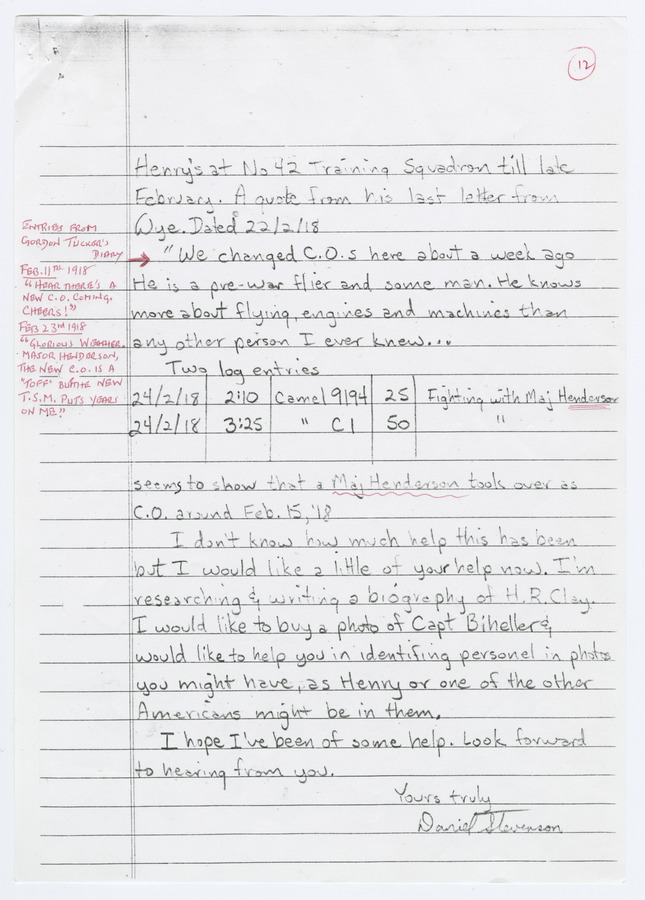 12
Henry's at No 42 Training Squadron till late
February. A quote from his last letter from
Wye. Dated 22/2/18
"We changed C.O.s here about a week ago
He is a pre-war flier and some man. He knows
more about flying, engines and machines than
any other person I ever knew...
Two log entries
24/2/18 2:10 Camel 9194 25 Fighting with Maj Henderson
24/2/18 3:25 " C1 50 "
seems to show that a Maj Henderson took over as
C.O. around Feb. 15, '18
I don't know how much help this has been
but I would like a little of your help now. I'm
researching & writing a biography of H.R. Clay.
I would like to buy a photo of Capt Biheller &
would like to help you in identifing personel in photos
you might have, as Henry or one of the other
Americans might be in them.
I hope I've been of some help. Look forward
to hearing from you.
Yours truly
Daniel Stevenson
ENTRIES FROM
GORDON TUCKER'S
DIARY
FEB. 11TH 1918
"HEAR THERE'S A
NEW C.O. COMING.
CHEERS!"
FEB 23RD 1918
"GLORIOUS WEATHER.
MAJOR HENDERSON,
THE NEW C.O. IS A
"TOFF" BUT THE NEW
T.S.M. PUTS YEARS
ON ME."